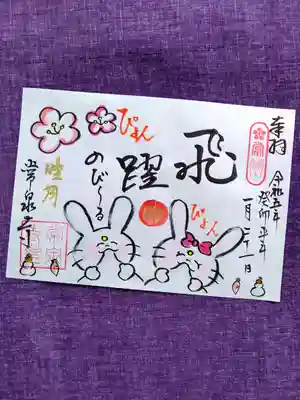 奉拝
令和五年
癸卯
一月二十一日
飛
躍
ぴょん
ぴょん
のび〜る
睦月
栄泉寺